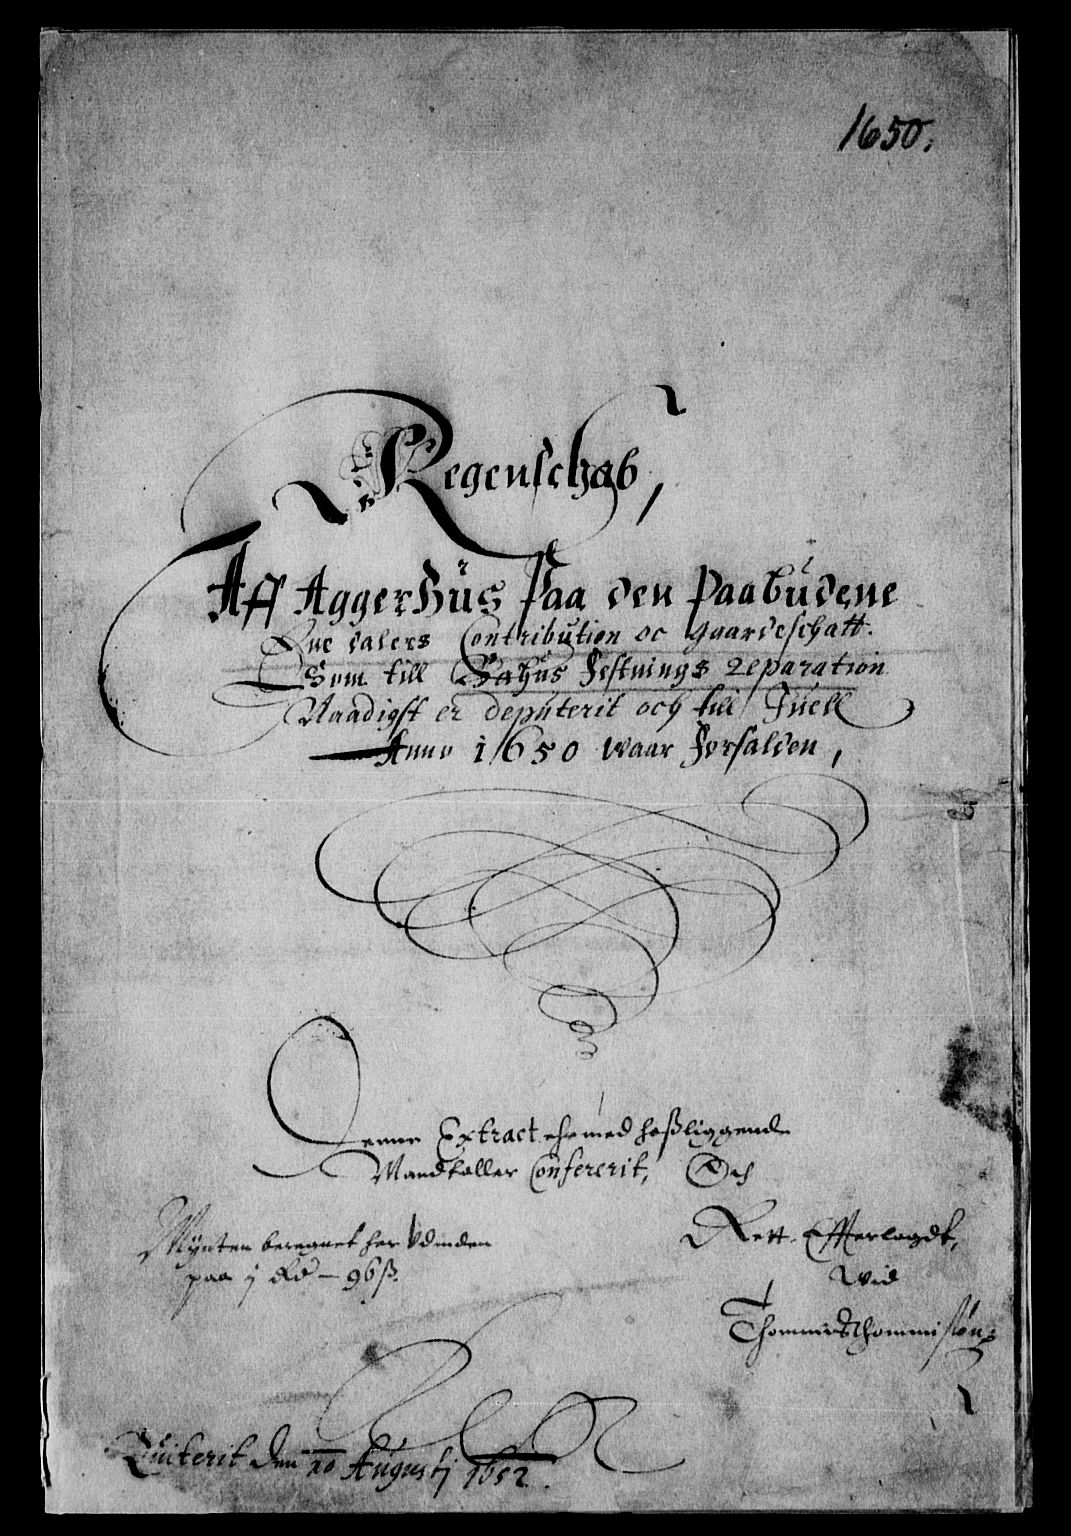 1650.
Regenschab,
Aff Aggerhüs Paa den Paabudene
Ene dalers Contribution oc gaardeschatt.
Som till Bahus Festnings Reparation
Naadigst er deputerit och till Juell
Anno 1650 waar Forfalden,
Denne Extract ehr med hoßliggende
Mandtaller Confererit, Och
Rett Effterlagdt,
Wid
Thommis Thommisiøn
Mÿnten beregnet her Vdinden
paa j Rd — 96 ß.
Quiterit den 20 Augustj 1652.